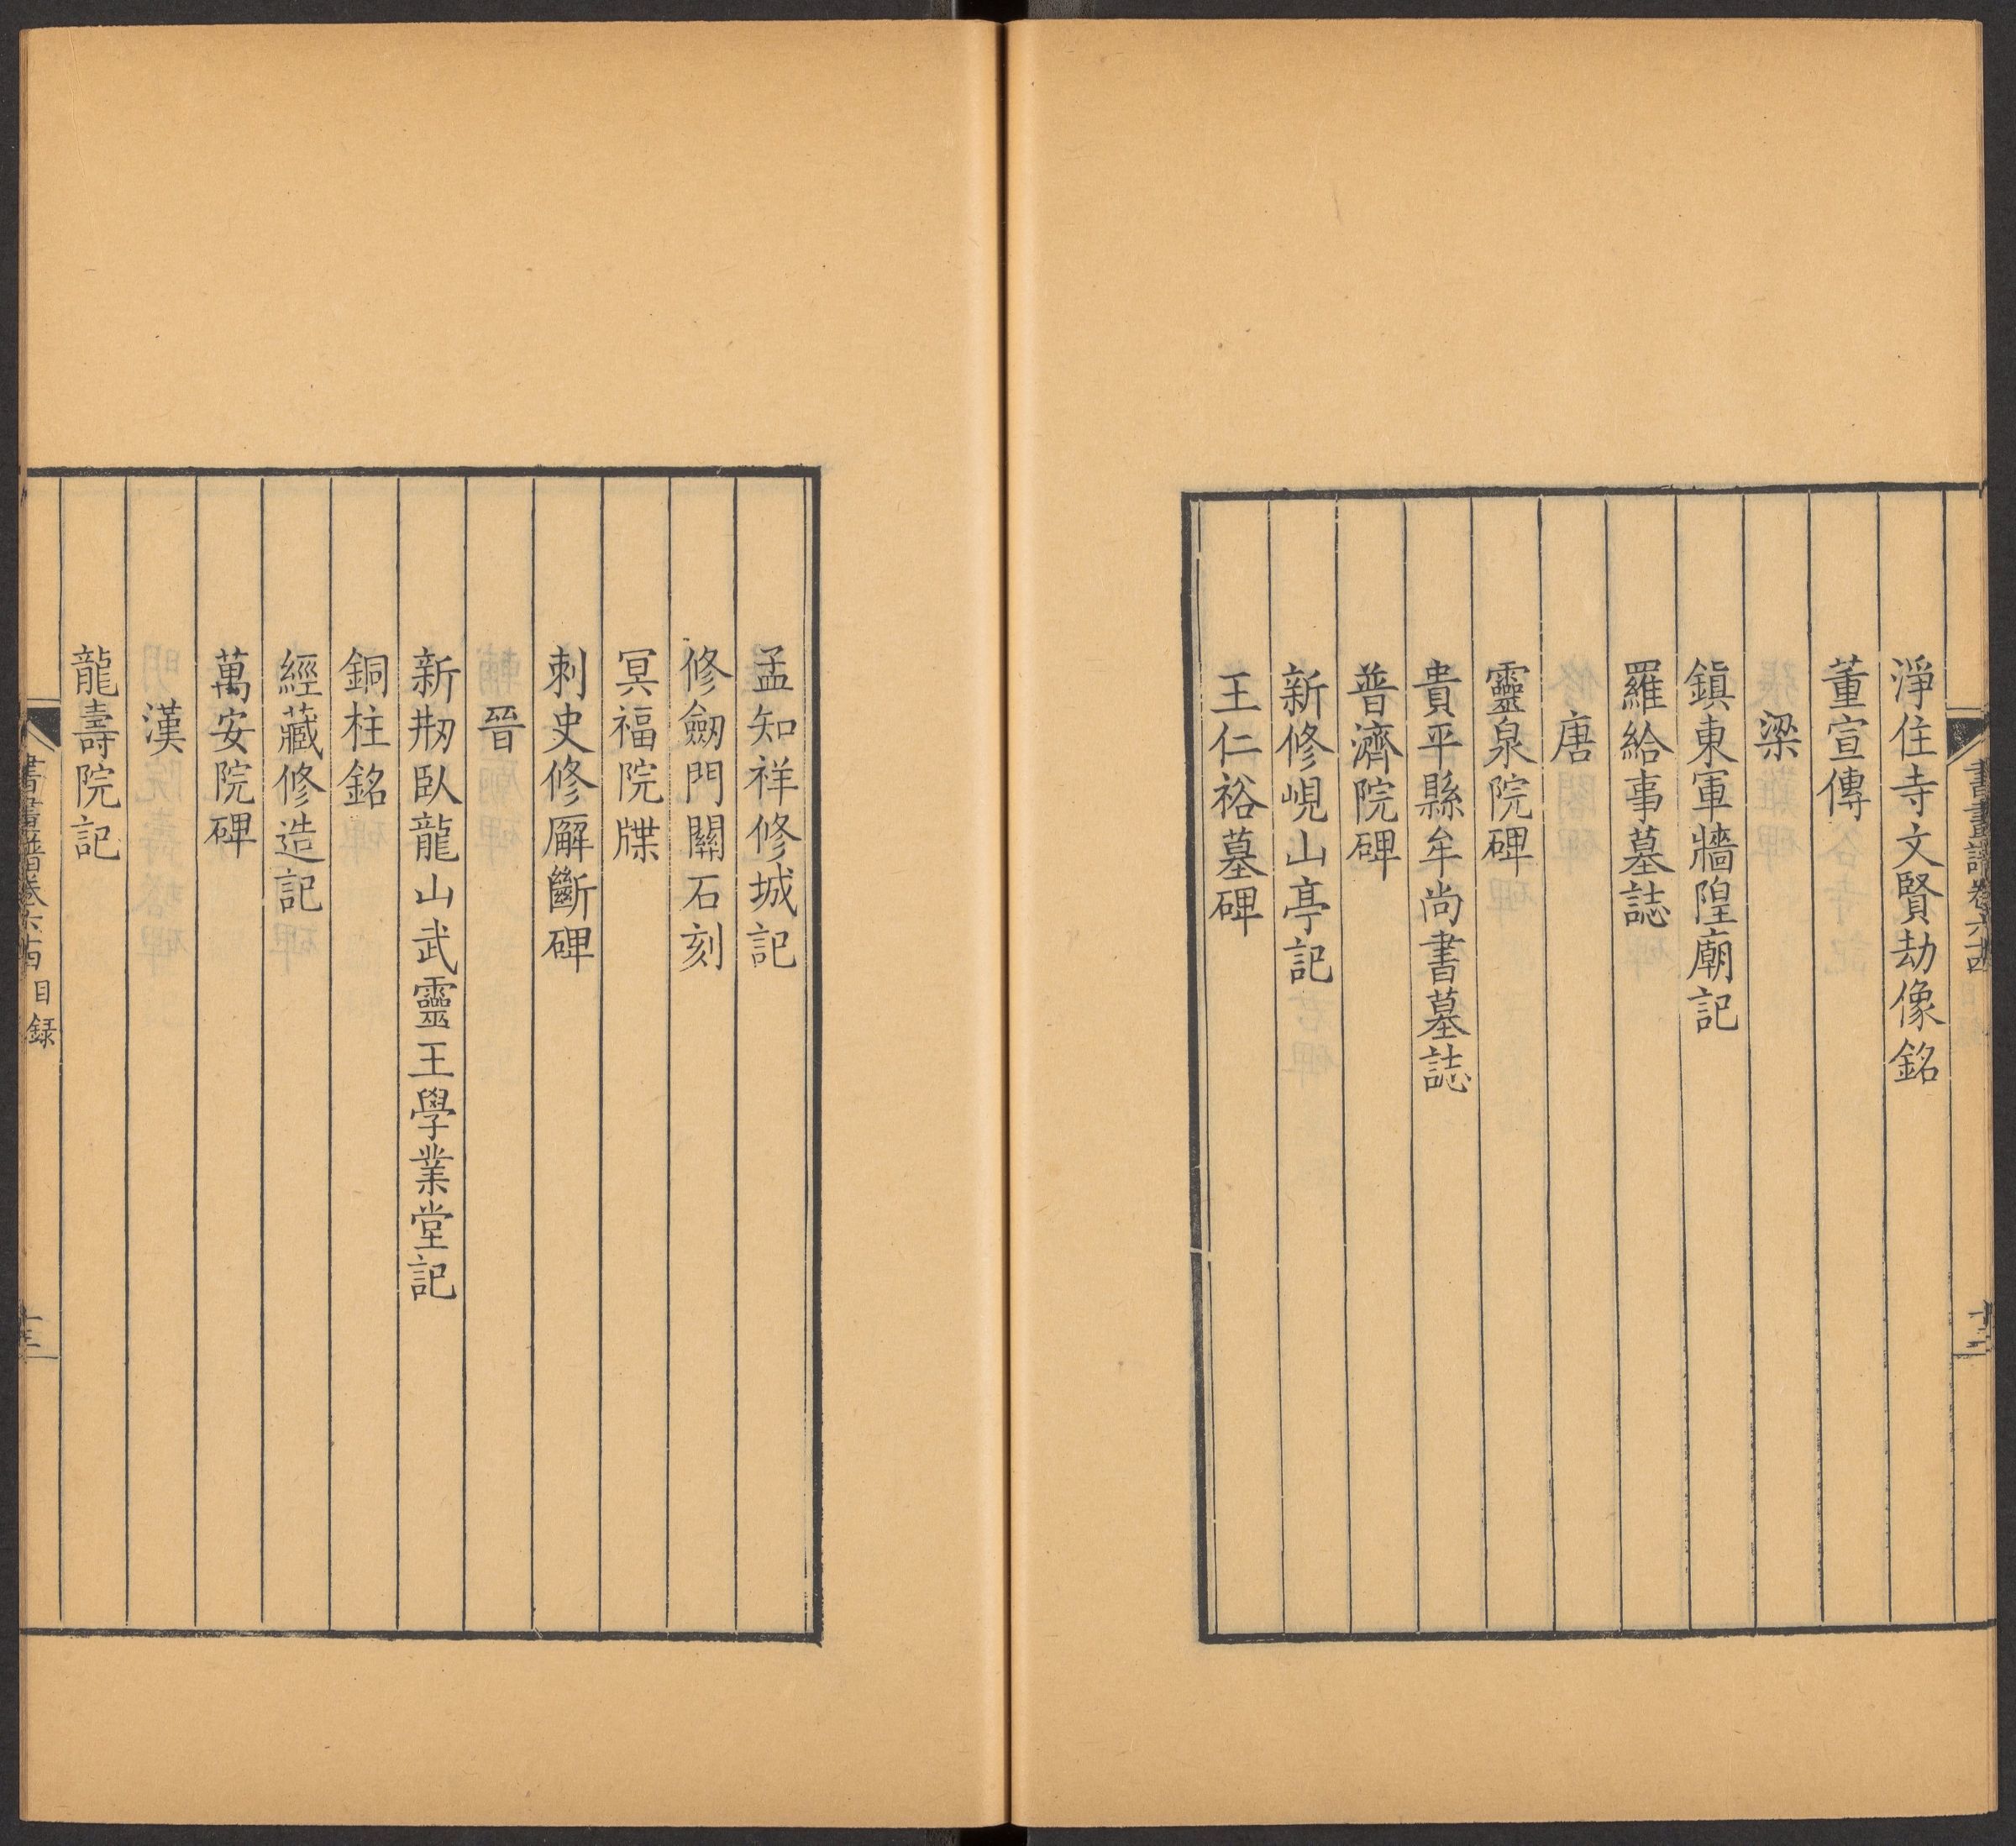 淨住寺文賢劫像銘
董宣傳
梁
鎮東軍牆隍廟記
羅給事墓誌
唐
靈泉院碑
貴平縣牟尚書墓誌
普濟院碑
新修峴山亭記
王仁裕墓碑
孟知祥修城記
修劒門關石刻
冥福院牒
刺史修廨斷碑
晉
新刱臥龍山武靈王學業堂記
銅柱銘
經藏修造記
萬安院碑
漢
龍壽院記
書畫譜卷六十四 目録
十三